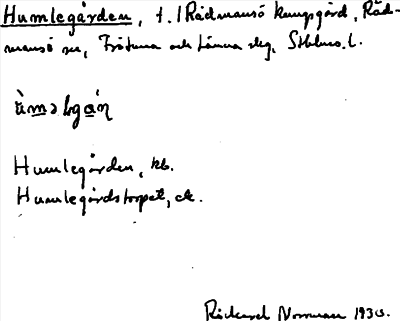 Humlegården, t. 1 Rådmansö kungsgård, Råd-
mansö sn, Frötuna och Länna slg, Sthlms l.
Humlegården, kb.
Humlegårdstorpet, ek.
Rickard Norman 1930.